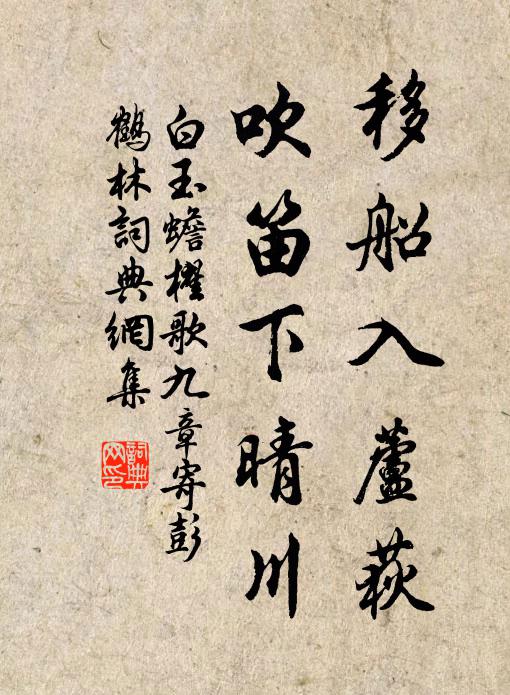 移船入蘆萩
吹笛下晴川
白玉蟾櫂歌九章寄彭
鶴林詞典網集
詞典
网印